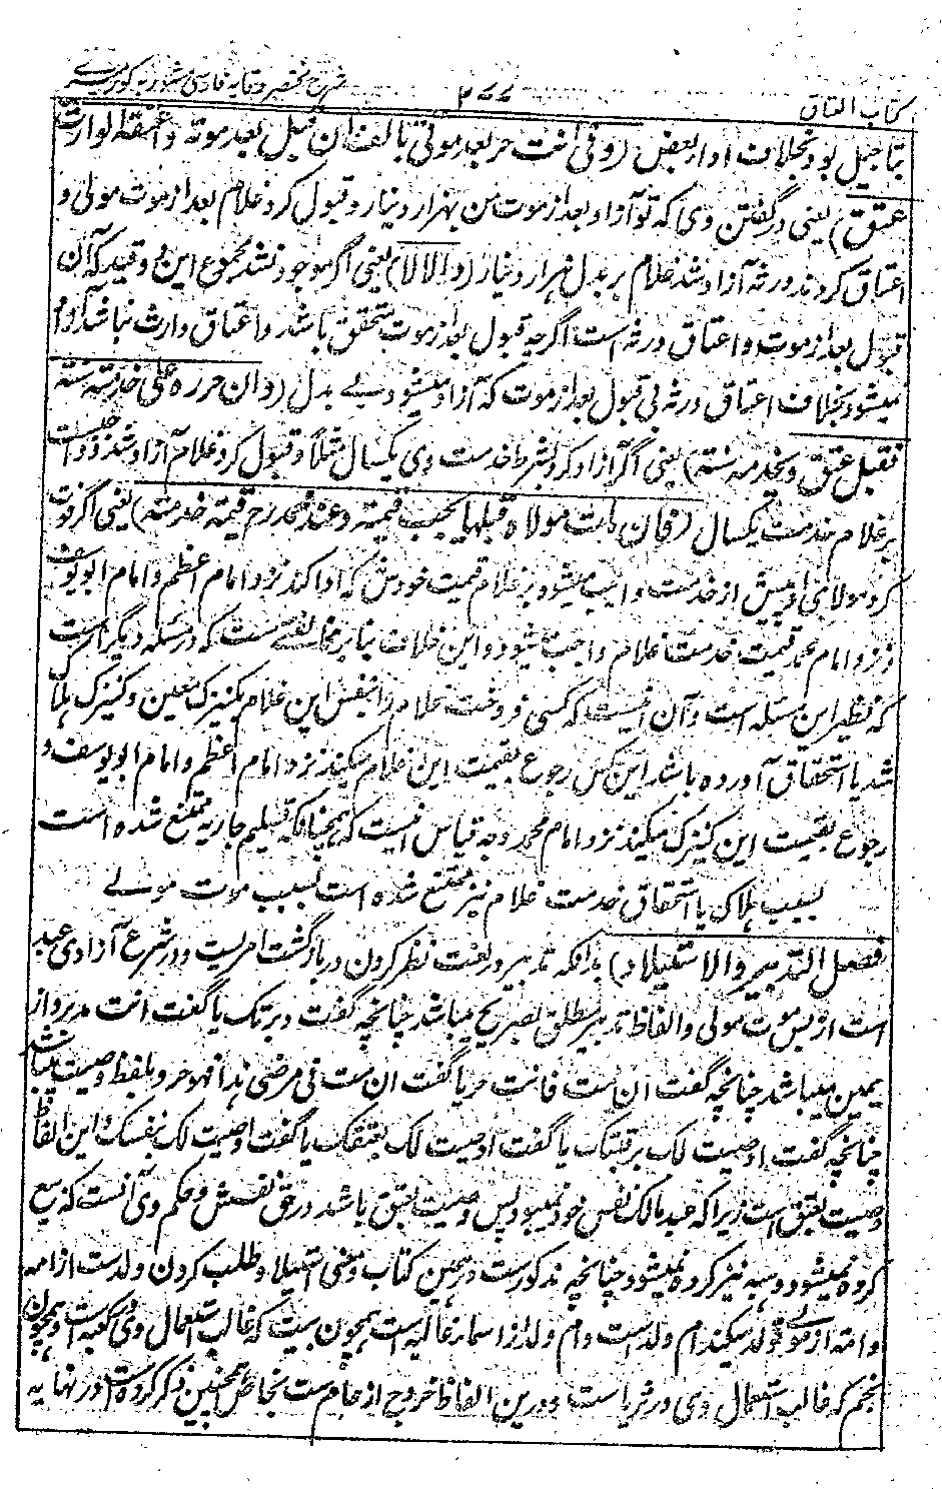 کتاب العتاق ۲۷۷ شرح مختصر وقایه فارسی مشهور به کور میری
بتاجیل بود بخلاف ادا ر بعض (وفی انت حر بعد موتی بالف ان قبل بعد موته واعتقه الوارث
عتق) یعنی در گفتن وی که تو آزاد بعد از موت من بهزار دینار و قبول کرد غلام بعد از موت مولی و
اعتاق کردند ورثه آزاد شد غلام بر بدل هزار دینار (والا لا) یعنی اگر موجود نشد مجموع این دو قید که آن
قبول بعد از موت و اعتاق ورثه است اگرچه قبول بعد از موت متحقق باشد و اعتاق وارث نباشد آزاد
نمیشود بخلاف اعتاق ورثه بی قبول بعد از موت که آزاد میشود بے بدل (وان حرره علی خدمته سنة
فقبل عتق ویخدمه سنة) یعنی اگر آزاد کرد بشرط خدمت وی یکسال مثلا و قبول کرد غلام آزاد شد و واجبست
بر غلام خدمت یکسال (فان مات مولاه قبلها یجب قیمته وعند محمد رح قیمة خدمته) یعنی اگر فوت
کرد مولای او پیش از خدمت واجب میشود بر غلام قیمت خودش که ادا کند نزد امام اعظم و امام ابو یوسف
و نزد امام محمد قیمت خدمت غلام واجب میشود و این خلاف بنا بر مخالفتے ست که در مسئله دیگر است
که نظیر این مسئله است و آن اینست که کسی فروخت غلام را بنفس این غلام بکنیزک معین و کنیزک هلاک
شد یا استحقاق آورده باشد این کس رجوع بقیمت این غلام میکند نزد امام اعظم و امام ابو یوسف و
رجوع بقیمت این کنیزک میکند نزد امام محمد وجه قیاس اینست که همچنانکه تسلیم جاریه ممتنع شده است
بسبب هلاکی یا استحقاق خدمت غلام نیز ممتنع شده است بسبب موت مولے
فصل التدبیر والاستیلاد) بدانکه تدبیر در لغت نظر کردن در بازگشت امریست و در شرع آزادی عبد
است از پس موت مولی و الفاظ تدبیر مطلق بصریح میباشد چنانچه گفت دبرتک یا گفت انت مدبر و از
یمین میباشد چنانچه گفت ان مت فانت حر یا گفت ان مت فی مرضی هذا فهو حر و بلفظ وصیت میباشد
چنانچه گفت اوصیت لک برقبتک یا گفت اوصیت لک بعتقک یا گفت اوصیت لک بنفسک این الفاظ
وصیت بعتق است زیرا که عبد مالک نفس خود نمیبود پس وصیت بعتق باشد در حق نفسش و حکم وی آنست که بیع
کرده نمیشود و هبه نیز کرده نمیشود چنانچه مذکورست در همین کتاب و معنی استیلاد طلب کردن ولدست از امه
و امه از مولے تولد میکند ام ولد است و ام ولد از اسماء غالبه است همچون بیت که غالب استعمال وی در کعبه است و همچون
نجم که غالب استعمال وی در ثریاست و درین الفاظ خروج از عام ست بخاص همچنین ذکر کرده است در نهایه